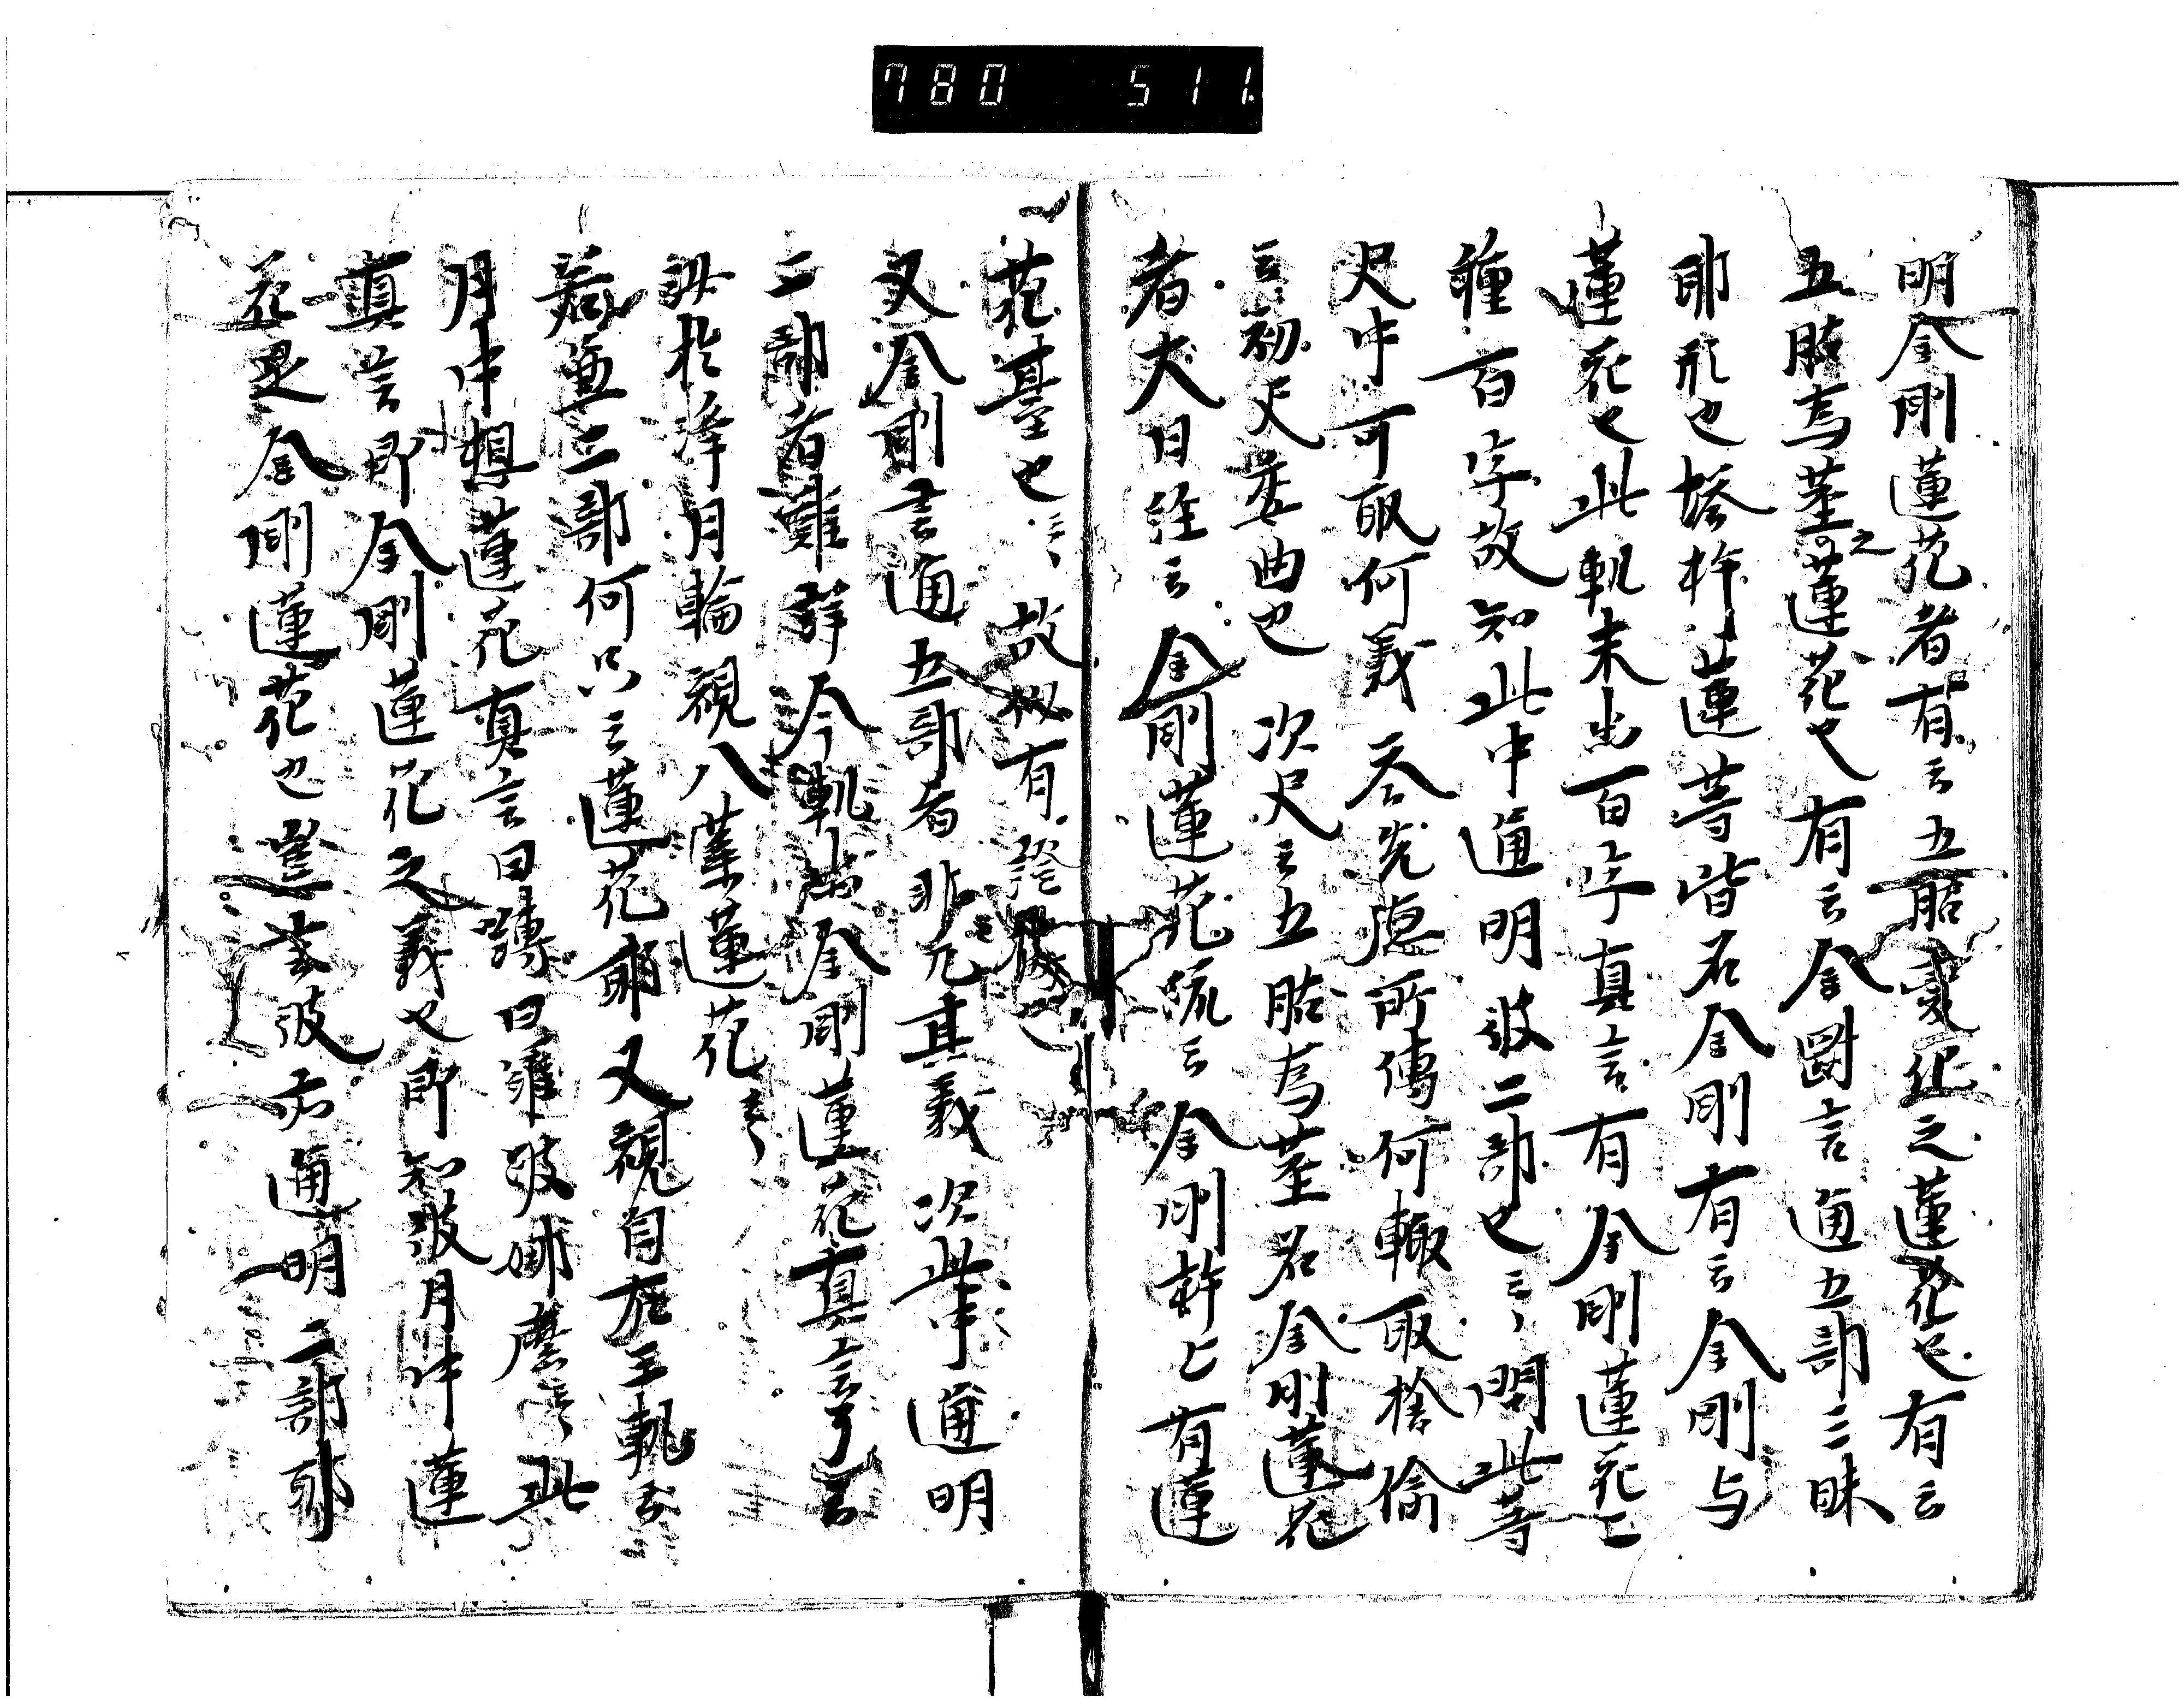 780 511
明金剛蓮花者有云五股變作之蓮花也有云
五股為莖之蓮花也有云金剛言通五部三昧
耶形也塔杵蓮等皆名金剛有云金剛与
蓮花也此軌未出百字真言有金剛蓮花二
種百字故知此中通明彼二部也云云問此等
尺中可取何義答先德所傳何輙取捨
云云初尺委曲也次尺云五股為莖名金剛蓮花
者大日経云金剛蓮花疏云金剛幹上有蓮
花基也云云故叔有證
又金剛言通五部者非无其義次此中通明
二部者難辟今軌出金剛蓮花真言了
以於淨月輪視八葉蓮花
若通二部何只云蓮花耶又視自在王軌云
月中想蓮花真言曰嚩曰羅跛娜麽云云此
真言即金剛蓮花之義也即知彼月中蓮
花是金剛蓮花也豈云彼亦通明二部耶